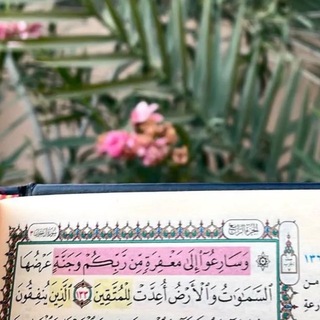 الجزء الرابع
وَسَارِعُوٓا۟ إِلَىٰ مَغْفِرَةٍ مِّن رَّبِّكُمْ وَجَنَّةٍ عَرْضُهَا
ٱلسَّمَٰوَٰتُ وَٱلْأَرْضُ أُعِدَّتْ لِلْمُتَّقِينَ ١٣٣ ٱلَّذِينَ يُنفِقُونَ